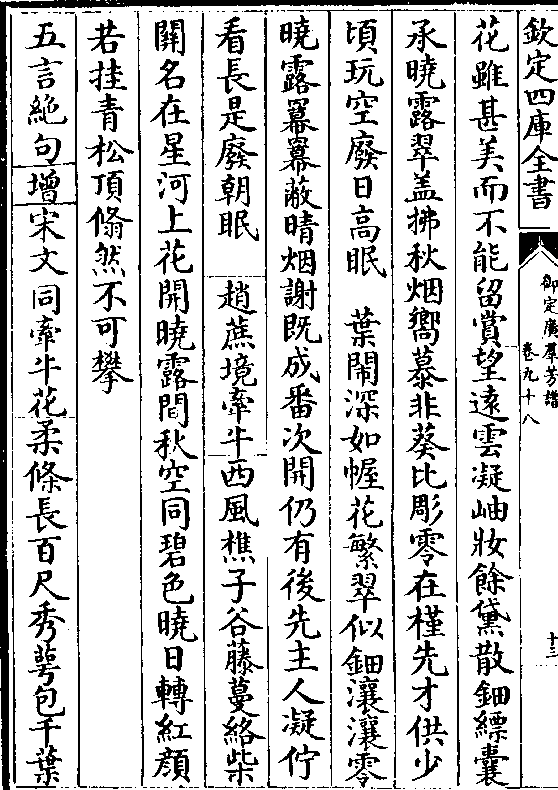 欽定四庫全書
御定廣羣芳譜
卷九十八
十三
花雖甚美而不能留賞望遠雲凝岫妝餘黛散鈿縹囊
承曉露翠盖拂秋烟嚮慕非葵比彫零在槿先才供少
頃玩空廢日高眠　葉鬧深如幄花繁翠似鈿瀼瀼零
曉露羃羃蔽晴烟謝既成番次開仍有後先主人凝佇
看長是廢朝眠　趙蕉境牽牛西風樵子谷藤蔓絡柴
闗名在星河上花開曉露間秋空同碧色曉日轉紅顔
若挂青松頂翛然不可攀
五言絶句增宋文同牽牛花柔條長百尺秀萼包千葉